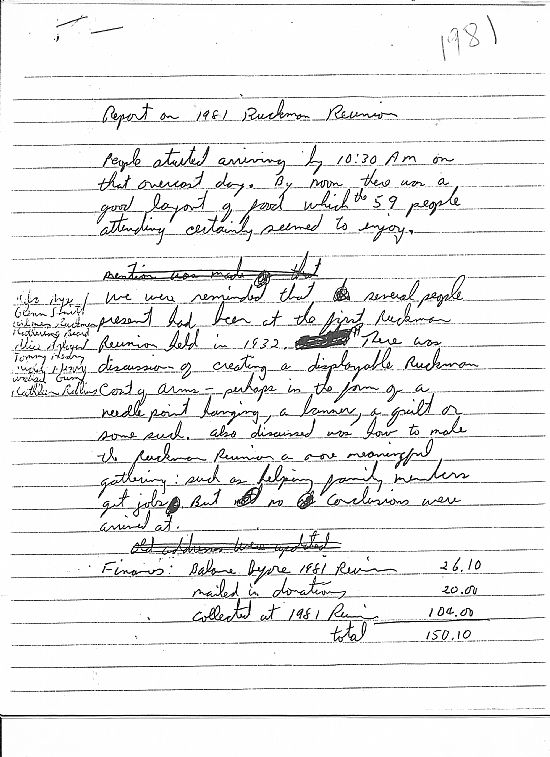 1981
Report on 1981 Ruckman Reunion
People started arriving by 10:30 AM on
that overcast day. By noon there was a
good layout of food which the 59 people
attending certainly seemed to enjoy.
mention was made that
we were reminded that several people
present had been at the first Ruckman
Reunion held in 1932. There was
discussion of creating a displayable Ruckman
Coat of Arms - perhaps in the form of a
needle point hanging, a banner, a quilt or
some such. Also discussed was how to make
the Ruckman Reunion a more meaningful
gathering: such as helping family members
get jobs. But no conclusions were
arrived at.
Old addresses were updated
Finances: Balance Before 1981 Reunion 26.10
mailed in donations 20.00
Collected at 1981 Reunion 104.00
total 150.10
Glenn Smith
Ruckman
Katherine
Alice
Tommy